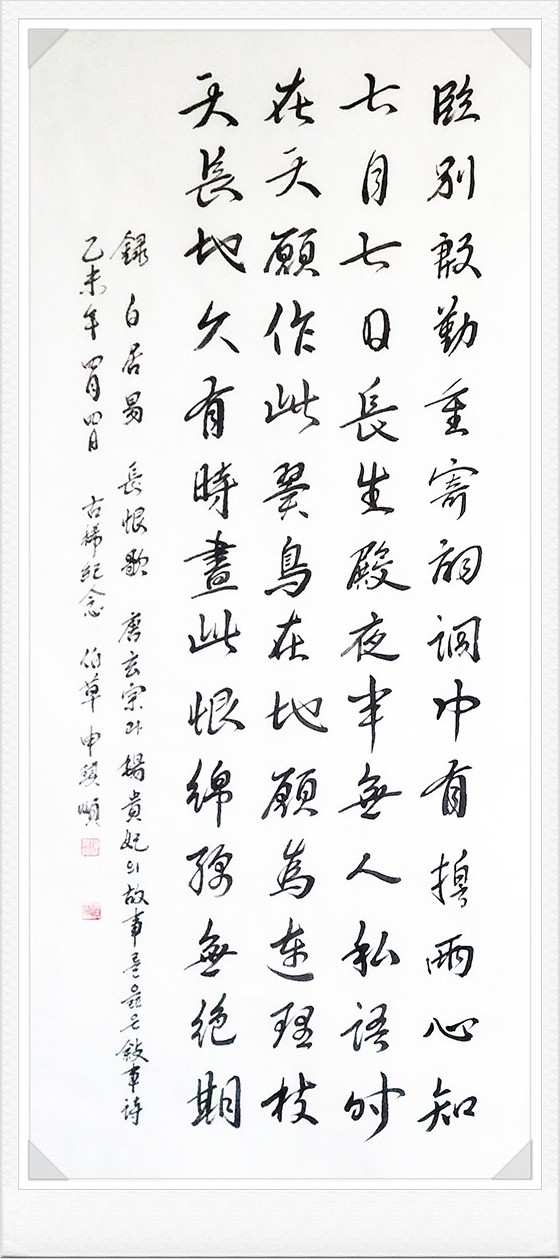 臨別殷勤重寄詞詞中有誓兩心知
七月七日長生殿夜半無人私語時
在天願作比翼鳥在地願為連理枝
天長地久有時盡此恨綿綿無絕期
錄 白居易 長恨歌 唐玄宗과 楊貴妃의 故事를 읊은 敍事詩
乙未年 四月 四日 古稀紀念 伯草 申 順